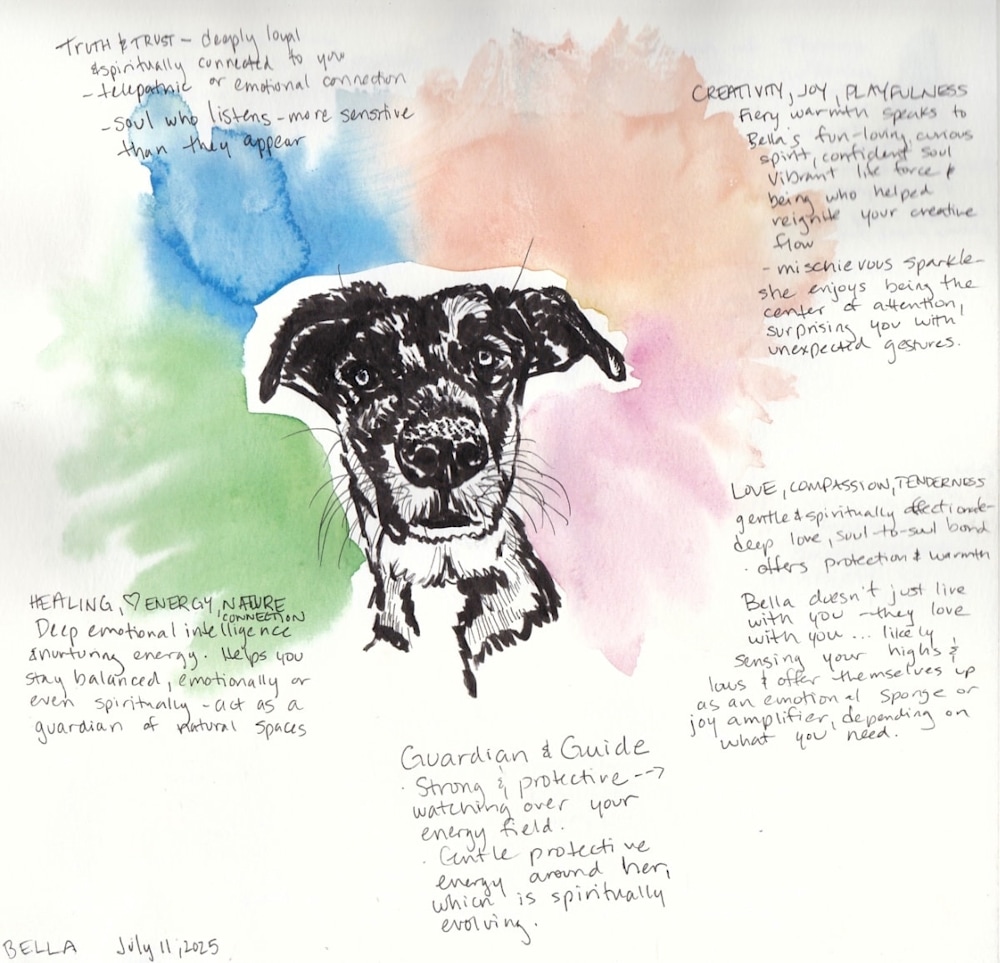 TRUTH & TRUST - deeply loyal
& spiritually connected to you
- telepathic or emotional connection
- soul who listens - more sensitive
than they appear
CREATIVITY, JOY, PLAYFULNESS
Fiery warmth speaks to
Bella's fun-loving, curious
spirit, confident soul
Vibrant life force &
being who helped
reignite your creative
flow
- mischievous sparkle -
she enjoys being the
center of attention,
surprising you with
unexpected gestures.
LOVE, COMPASSION, TENDERNESS
gentle & spiritually affectionate -
deep love, soul-to-soul bond
· offers protection & warmth
Bella doesn't just live
with you - they love
with you ... likely
sensing your highs &
lows & offer themselves up
as an emotional sponge or
joy amplifier, depending on
what you need.
HEALING, ♡ ENERGY, NATURE
CONNECTION
Deep emotional intelligence
& nurturing energy. Helps you
stay balanced, emotionally or
even spiritually - act as a
guardian of natural spaces
Guardian & Guide
· Strong & protective -->
watching over your
energy field.
· Gentle protective
energy around her,
which is spiritually
evolving.
BELLA July 11, 2025